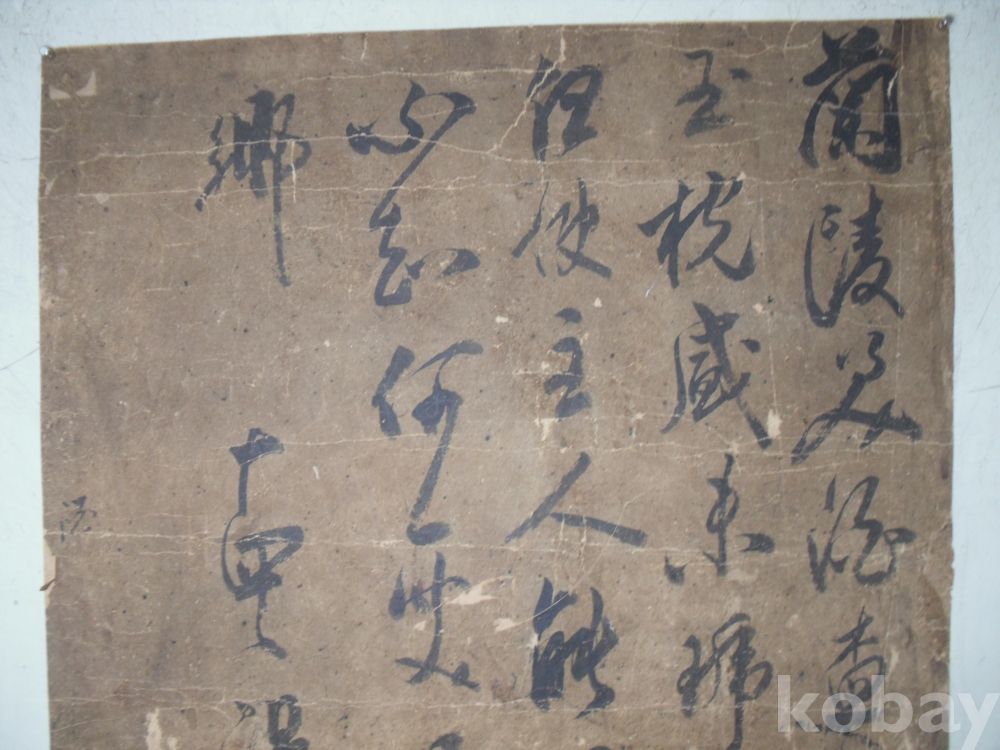 蘭陵美酒
玉椀盛來琥
但使主人能
不知何處
鄉
kobay